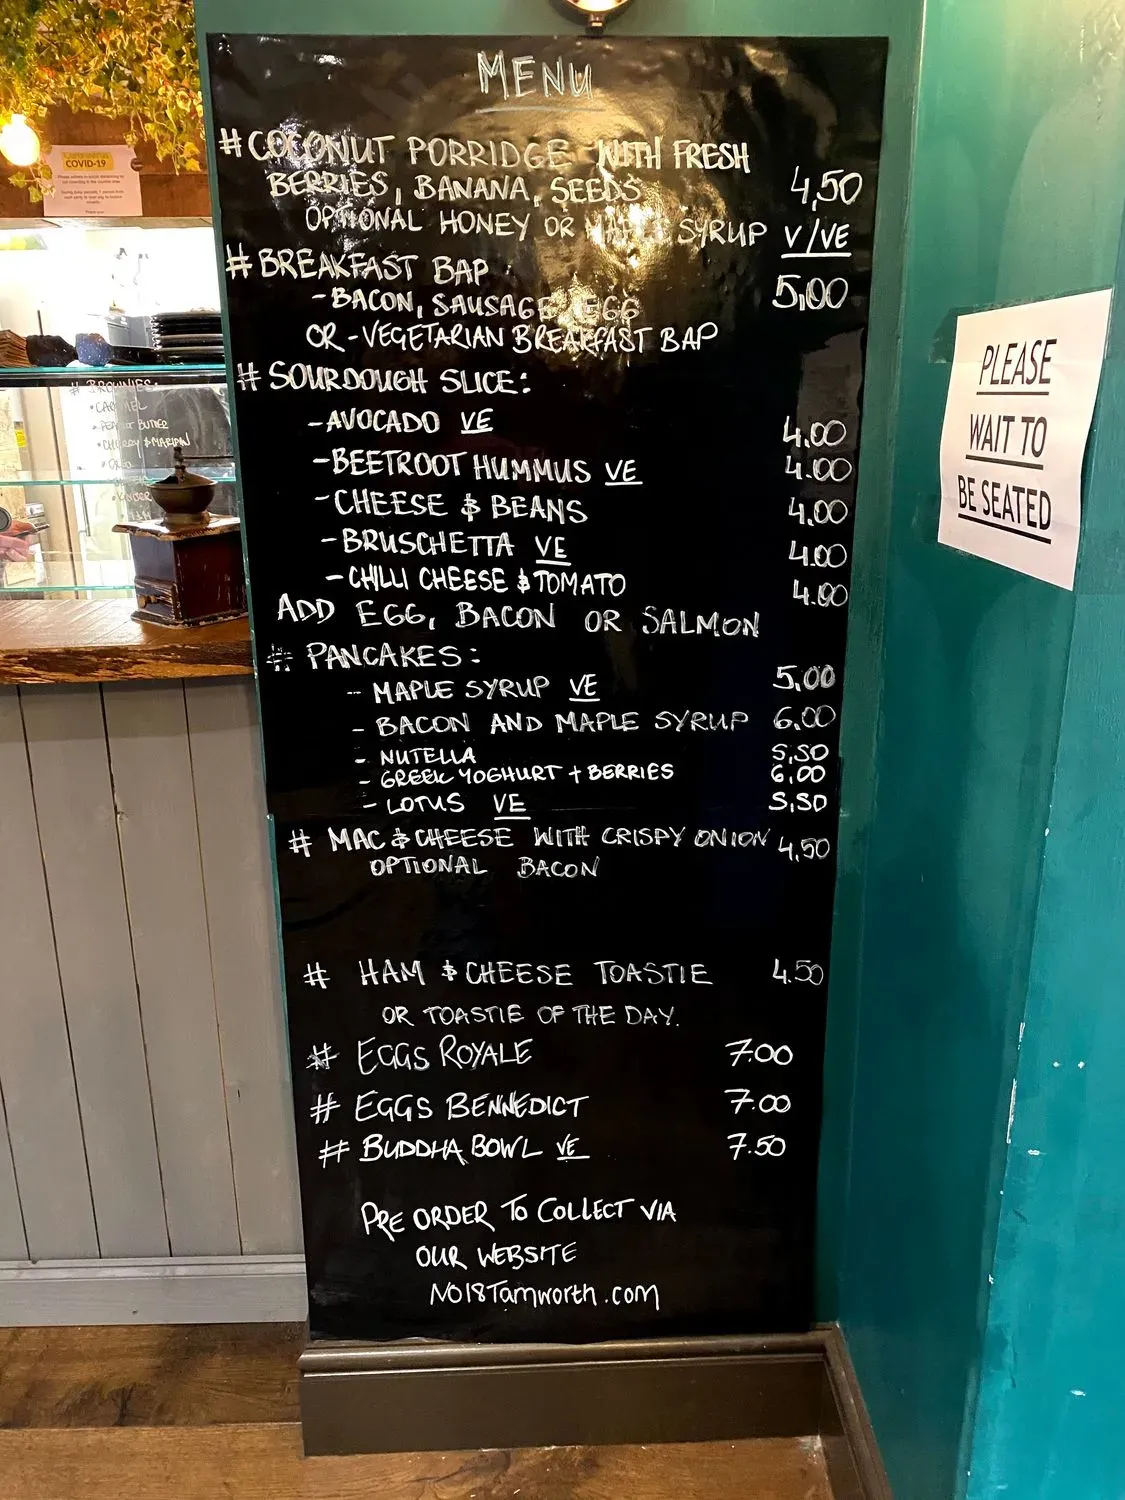 MENU
# COCONUT PORRIDGE WITH FRESH
BERRIES, BANANA, SEEDS 4,50
OPTIONAL HONEY OR MAPLE SYRUP V/VE
# BREAKFAST BAP 5,00
- BACON, SAUSAGE, EGG
OR - VEGETARIAN BREAKFAST BAP
# SOURDOUGH SLICE:
- AVOCADO VE 4.00
- BEETROOT HUMMUS VE 4.00
- CHEESE & BEANS 4.00
- BRUSCHETTA VE 4.00
- CHILLI CHEESE & TOMATO 4.00
ADD EGG, BACON OR SALMON
# PANCAKES:
- MAPLE SYRUP VE 5.00
- BACON AND MAPLE SYRUP 6.00
- NUTELLA 5.50
- GREEK YOGHURT + BERRIES 6.00
- LOTUS VE 5.50
# MAC & CHEESE WITH CRISPY ONION 4,50
OPTIONAL BACON
# HAM & CHEESE TOASTIE 4.50
OR TOASTIE OF THE DAY.
# EGGS ROYALE 7.00
# EGGS BENNEDICT 7.00
# BUDDHA BOWL VE 7.50
PRE ORDER TO COLLECT VIA
OUR WEBSITE
NO18Tamworth.com
PLEASE
WAIT TO
BE SEATED
COVID-19
# BROWNIES:
• CARAMEL
• PEANUT BUTTER
• CHERRY & MARZIPAN
• OREO